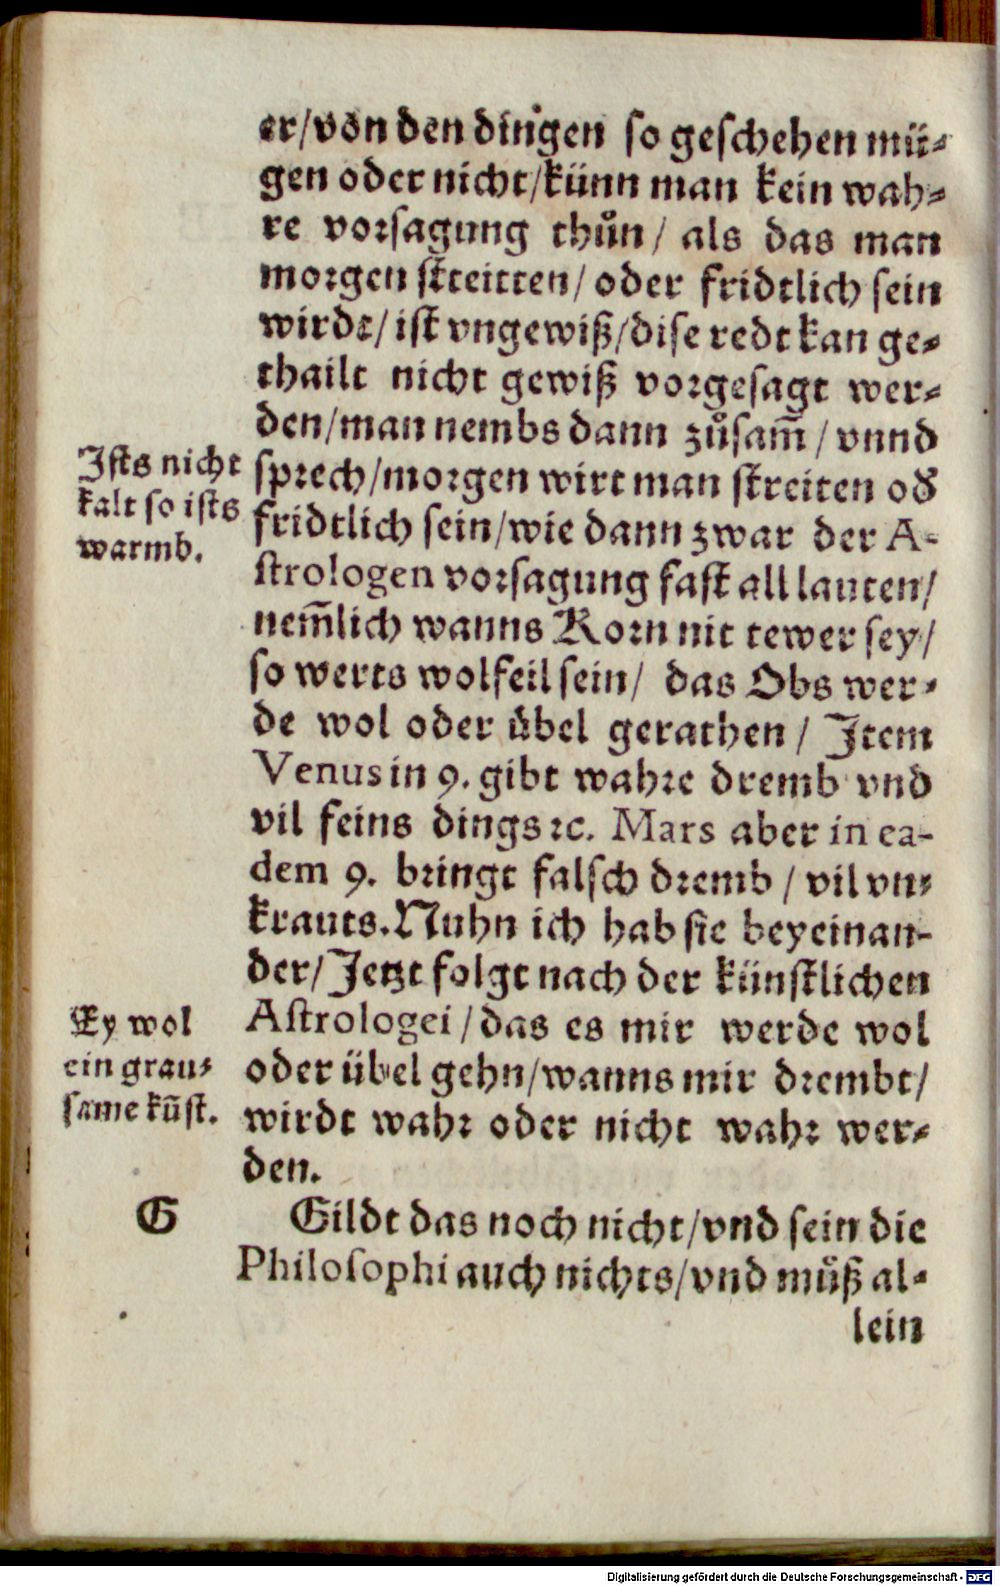 er/von den dingen so geschehen mü-
gen oder nicht/künn man kein wah-
re vorsagung thůn/ als das man
morgen streitten/ oder fridtlich sein
wirdt/ ist vngewiß/dise redt kan ge-
thailt nicht gewiß vorgesagt wer-
den/man nembs dann zůsam̃/ vnnd
sprech/morgen wirt man streiten od
fridtlich sein/wie dann zwar der A-
strologen vorsagung fast all lauten/
nem̃lich wanns Korn nit tewer sey/
so werts wolfeil sein/ das Obs wer-
de wol oder übel gerathen/ Item
Venus in 9. gibt wahre dremb vnd
vil feins dings ꝛc. Mars aber in ea-
dem 9. bringt falsch dremb/ vil vn-
krauts. Nuhn ich hab sie beyeinan-
der/ Jetzt folgt nach der künstlichen
Astrologei/das es mir werde wol
oder übel gehn/wanns mir drembt/
wirdt wahr oder nicht wahr wer-
den.
Ists nicht
kalt so ists
warmb.
Ey wol
ein grau-
same kũst.
G
Gildt das noch nicht/vnd sein die
Philosophi auch nichts/vnd můß al-
lein
Digitalisierung gefördert durch die Deutsche Forschungsgemeinschaft - DFG